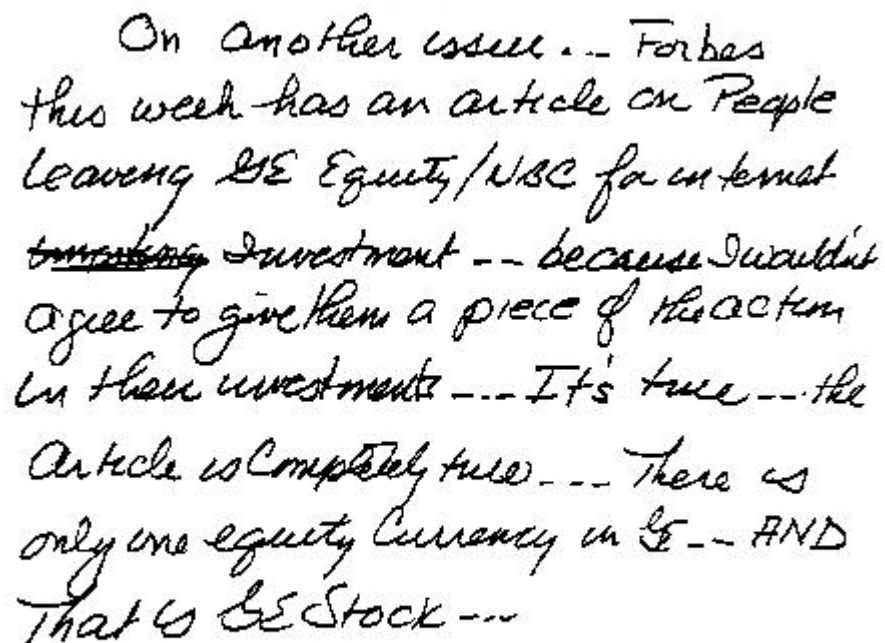 On another issue... Forbes
this week has an article on People
Leaving GE Equity/NBC for internet
Investment -- because I wouldn't
agree to give them a piece of the action
in their investments ---- It's true -- the
Article is Completely true ---- There is
only one equity Currency in GE -- AND
That is GE Stock ---